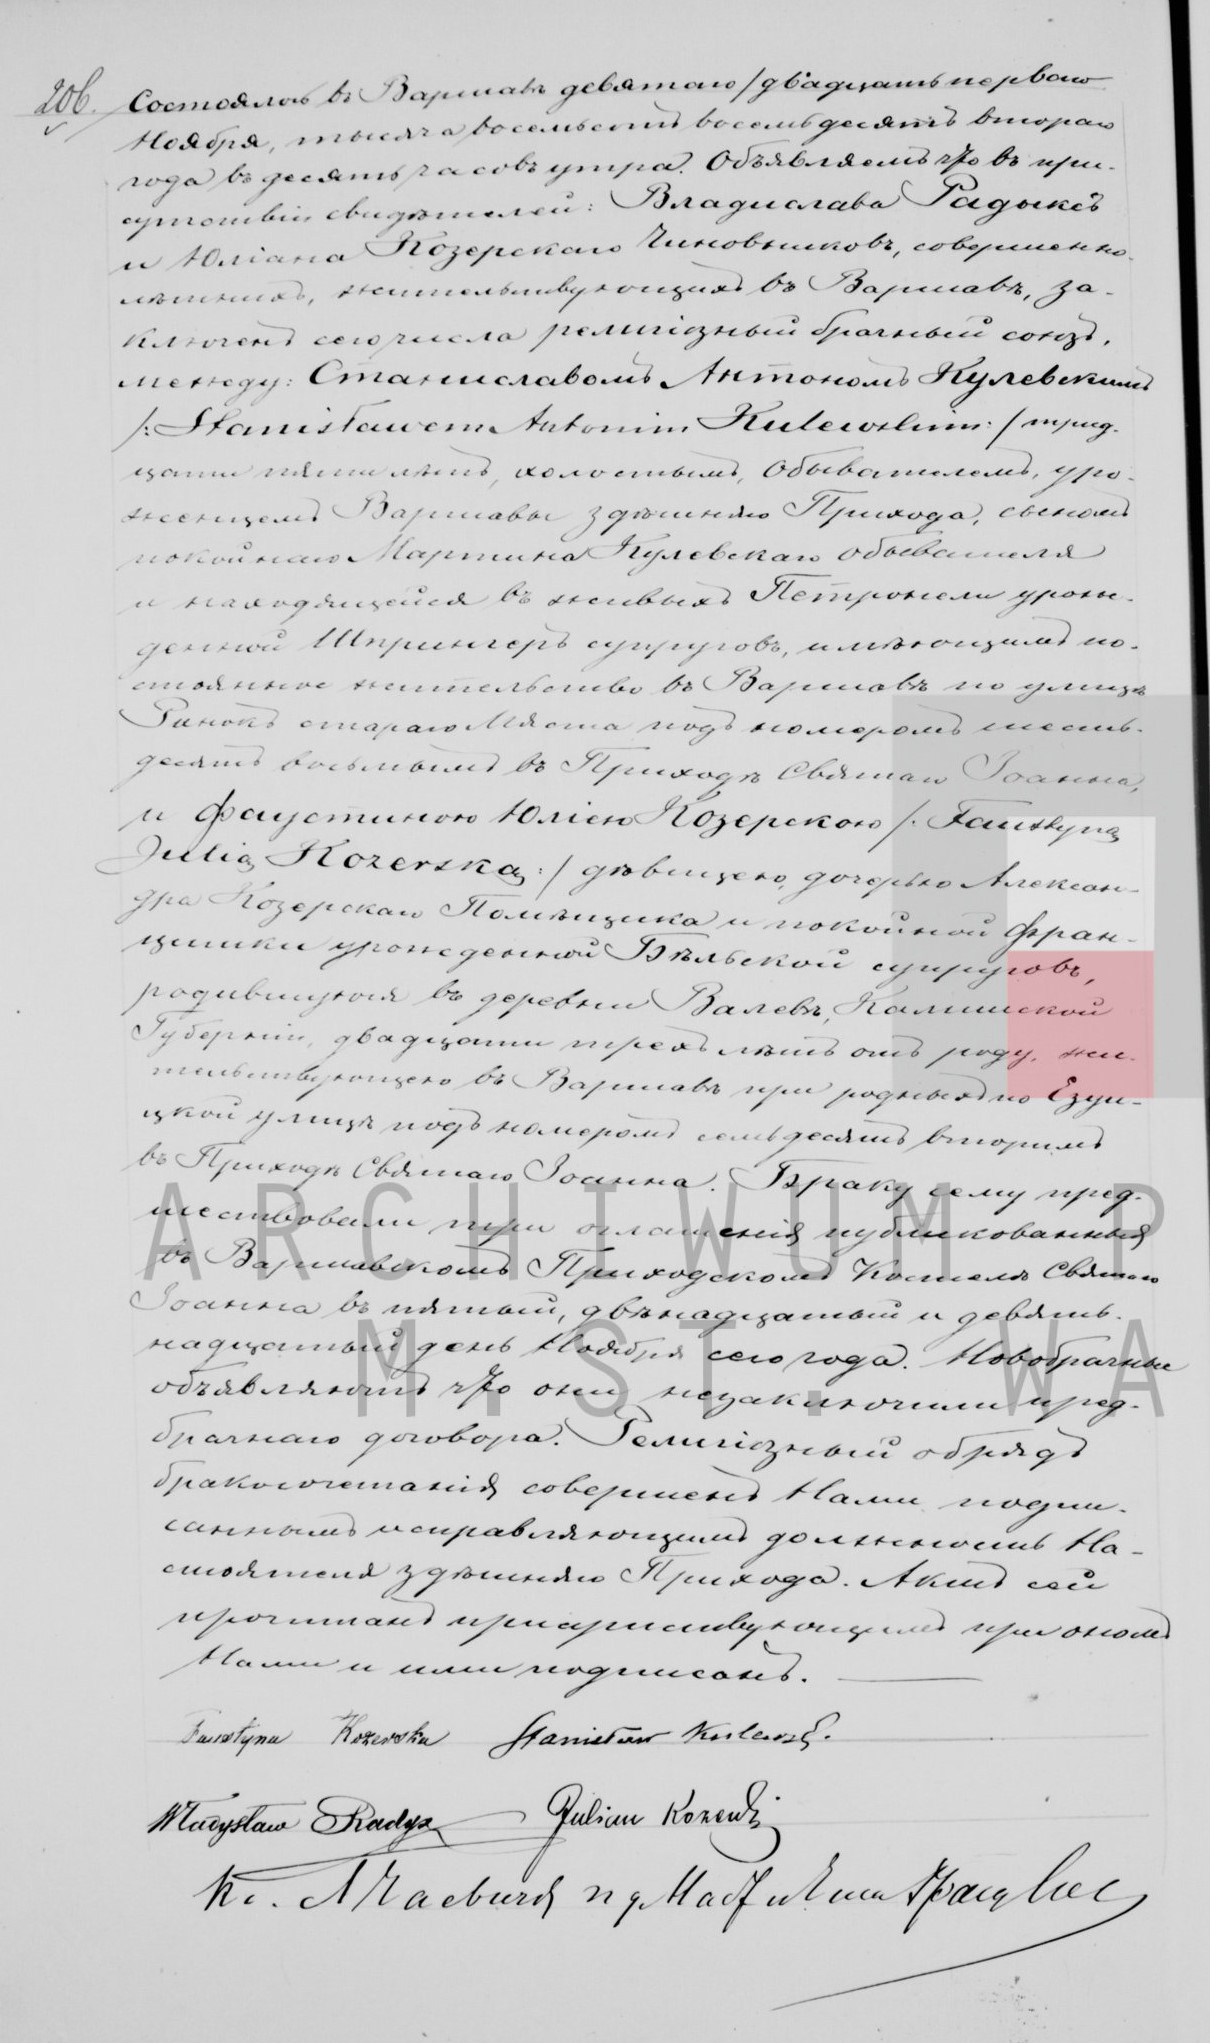 206.
Состоялось въ Варшавѣ девятаго /двадцать перваго
Ноября, тысяча восемьсотъ восемьдесятъ втораго
года въ десять часовъ утра. Объявляемъ что въ при-
сутствіи свидѣтелей: Владислава Радыксъ
и Юліана Козерскаго Чиновниковъ, совершенно-
лѣтнихъ, жительствующихъ въ Варшавѣ, за-
ключенъ сего числа религіозный брачный союзъ,
между: Станиславомъ Антономъ Кулевскимъ
/: Stanisławem Antonim Kulewskim: / трид-
цати пяти лѣтъ, холостымъ, Обывателемъ, уро-
женцемъ Варшавы здѣшняго Прихода, сыномъ
покойнаго Мартина Кулевскаго обывателя
и находящейся въ живыхъ Петронели урож-
денной Шпрингеръ супруговъ, имѣющимъ по-
стоянное жительство въ Варшавѣ по улицѣ
Рынокъ стараго Мяста подъ номеромъ шесть-
десятъ восьмымъ въ Приходѣ Святаго Іоанна,
и Фаустиною Юліею Козерскою /: Faustyną
Julią Kozerską: / дѣвицею, дочерью Александ-
дра Козерскаго Помѣщика и покойной Фран-
цишки урожденной Бѣльской супруговъ,
родившуюся въ деревни Валевѣ, Калишской
Губерніи, двадцати трехъ лѣтъ отъ роду, жи-
тельствующею въ Варшавѣ при родныхъ по Езуи-
цкой улицѣ подъ номеромъ семьдесятъ вторымъ
въ Приходѣ Святаго Іоанна. Браку сему пред-
шествовали три оглашенія публикованныя
въ Варшавскомъ Приходскомъ Костелѣ Святаго
Іоанна въ пятый, двѣнадцатый и девять-
надцатый день Ноября сего года. Новобрачные
объявляютъ что они незаключили пред-
брачнаго договора. Религіозный обрядъ
бракосочетанія совершенъ Нами подпи-
саннымъ исправляющимъ должность На-
стоятеля здѣшняго Прихода. Актъ сей
прочитанъ присутствующимъ при ономъ
Нами и ими подписанъ.
Faustyna Kozerska Stanisław Kulewski.
Władysław Radyx Julian Kozerski
Кс.
ARCHIWUM P
M. ST. WA